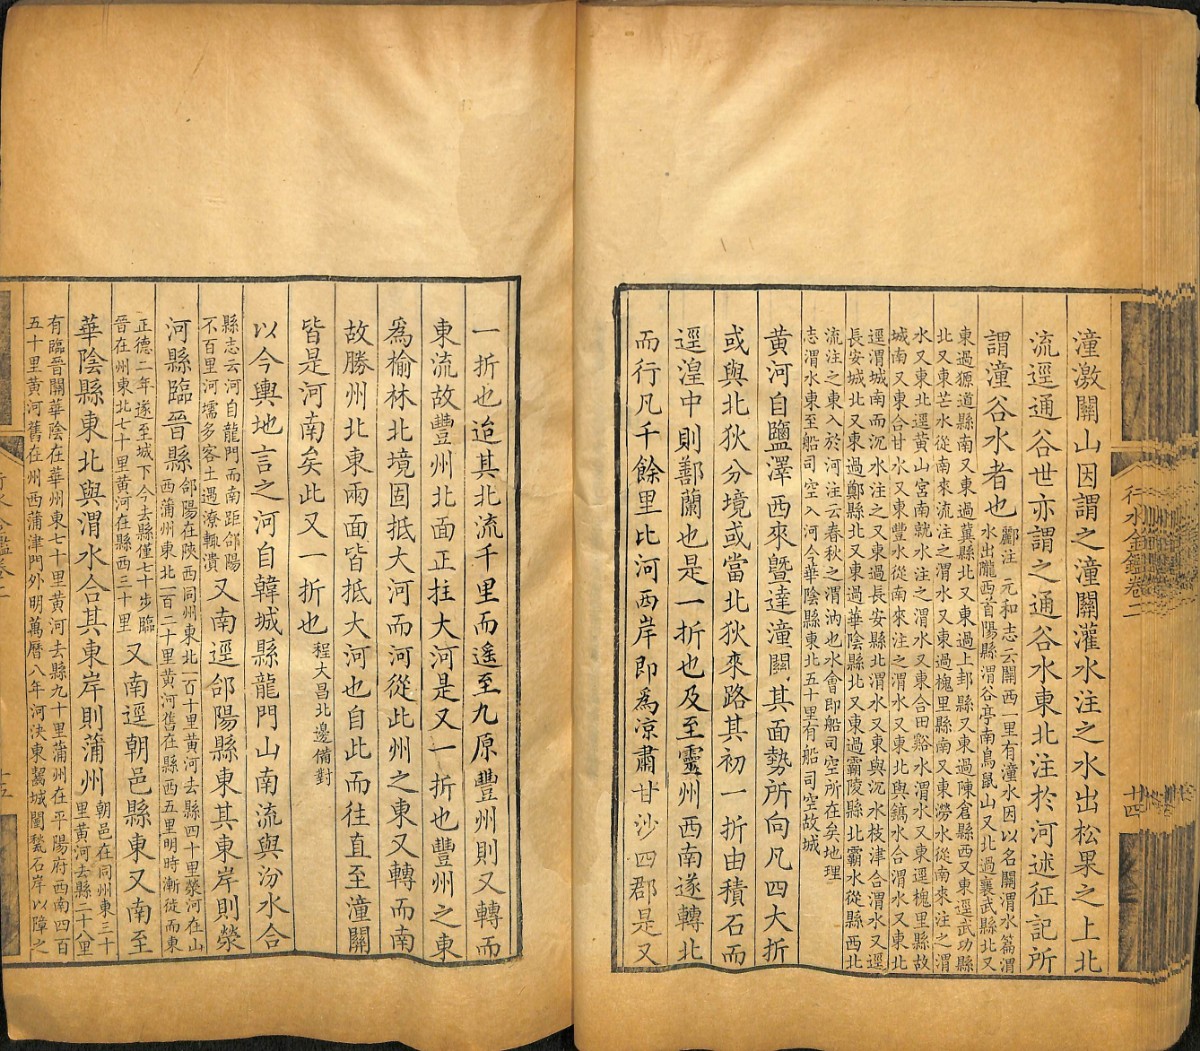 潼激關山因謂之潼關灌水注之水出松果之上北
流逕通谷世亦謂之通谷水東北注於河述征記所
謂潼谷水者也
酈注 元和志云關西一里有潼水因以名關渭水篇渭
水出隴西首陽縣渭谷亭南鳥鼠山又北過襄武縣北又
東過獂道縣南又東過冀縣北又東過上邽縣又東過陳倉縣西又東逕武功縣
北又東芒水從南來流注之渭水又東過槐里縣南又東澇水從南來注之渭
水又東北逕黃山宮南就水注之渭水又東合田谿水渭水又東逕槐里縣故
城南又東合甘水又東豐水從南來注之渭水又東北與鎬水合渭水又東北
逕渭城南而沉水注之又東過長安縣北渭水又東與沉水枝津合渭水又逕
長安城北又東過鄭縣北又東過華陰縣北又東過霸陵縣北霸水從縣西北
流注之東入於河注云春秋之渭汭也水會即船司空所在矣地理
志渭水東至船司空入河今華陰縣東北五十里有船司空故城
黃河自鹽澤西來曁達潼關其面勢所向凡四大折
或與北狄分境或當北狄來路其初一折由積石而
逕湟中則鄯蘭也是一折也及至靈州西南遂轉北
而行凡千餘里比河西岸即為凉肅甘沙四郡是又
行水金鑑卷二
十四
一折也迨其北流千里而遙至九原豐州則又轉而
東流故豐州北面正拄大河是又一折也豐州之東
為榆林北境固抵大河而河從此州之東又轉而南
故勝州北東兩面皆抵大河也自此而往直至潼關
皆是河南矣此又一折也
程大昌北邊備對
以今輿地言之河自韓城縣龍門山南流與汾水合
縣志云河自龍門而南距郃陽
不百里河壖多客土遇潦輒潰
又南逕郃陽縣東其東岸則滎
河縣臨晉縣
郃陽在陝西同州東北一百十里黃河去縣四十里滎河在山
西蒲州東北一百二十里黃河舊在縣西五里明時漸徙而東
正德二年遂至城下今去縣僅七十步臨
晉在州東北七十里黃河在縣西三十里
又南逕朝邑縣東又南至
華陰縣東北與渭水合其東岸則蒲州
朝邑在同州東三十
里黃河去縣二十八里
有臨晉關華陰在華州東七十里黃河去縣九十里蒲州在平陽府西南四百
五十里黃河舊在州西蒲津門外明萬曆八年河決東齧城闉甃石岸以障之